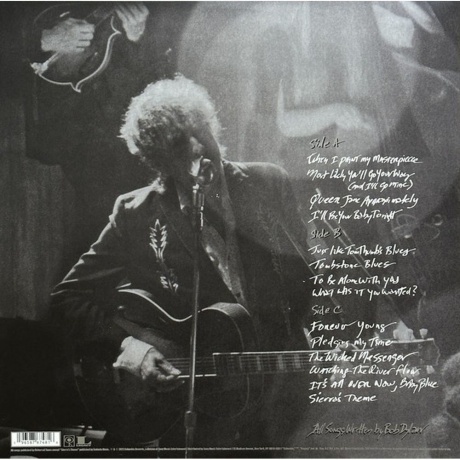 Side A
When I paint my Masterpiece
Most Likely You'll Go Your Way
(and I'll Go mine)
Queen Jane Approximately
I'll Be Your Baby Tonight
Side B
Just Like Tom Thumb's Blues
Tombstone Blues
To Be Alone With You
What was it you wanted?
Side C
Forever Young
Pledging my Time
The Wicked Messenger
Watching The River Flow
IT'S ALL OVER NOW, Baby Blue
Sierra's Theme
All Songs Written by Bob Dylan
L